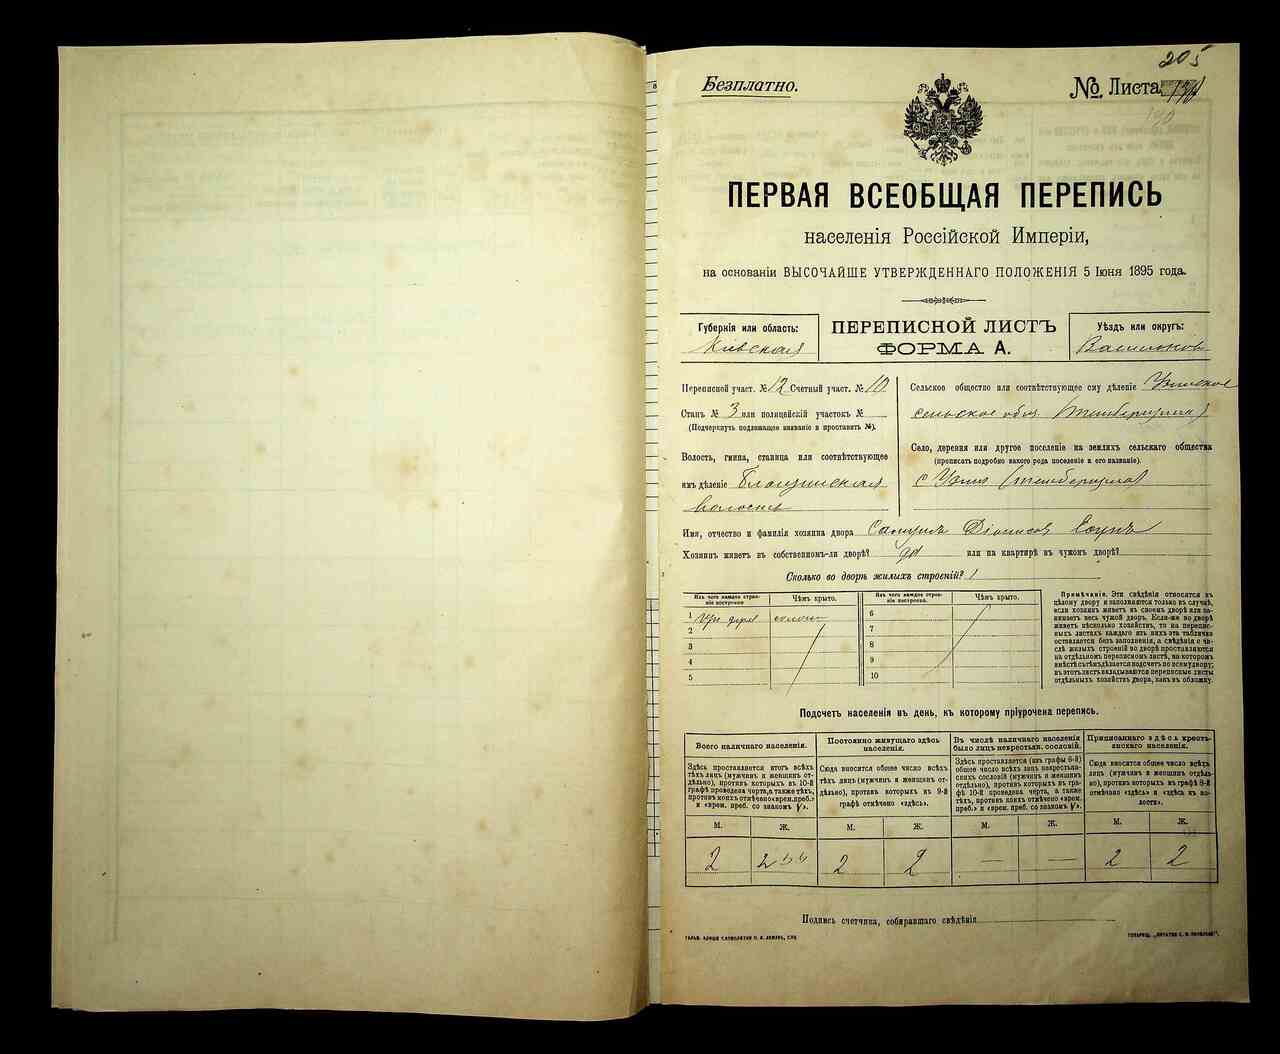 205
Безплатно.
№ Листа
190
ПЕРВАЯ ВСЕОБЩАЯ ПЕРЕПИСЬ
населенія Россійской Имперіи,
на основаніи ВЫСОЧАЙШЕ УТВЕРЖДЕННАГО ПОЛОЖЕНІЯ 5 Іюня 1895 года.
Губернія или область:
Кіевская
ПЕРЕПИСНОЙ ЛИСТЪ
ФОРМА А.
Уѣздъ или округъ:
Васильков
Переписной участ. № 12 Счетный участ. № 10
Станъ № 3 или полицейскій участокъ №
(Подчеркнуть подлежащее названіе и проставить №).
Волость, гмина, станица или соотвѣтствующее
имъ дѣленіе
волость
Сельское общество или соотвѣтствующее ему дѣленіе Узинское
сельское общ.
Село, деревня или другое поселеніе на земляхъ сельскаго общества
(прописать подробно какого рода поселеніе и его названіе).
с Узин
Имя, отчество и фамилія хозяина двора Самуилъ Діонисов
Хозяинъ живетъ въ собственномъ-ли дворѣ? да или на квартирѣ въ чужомъ дворѣ?
Сколько во дворѣ жилыхъ строеній? 1
Изъ чего каждое строеніе построено
Чѣмъ крыто.
Изъ чего каждое строеніе построено.
Чѣмъ крыто.
1 солом
2
3
4
5
6
7
8
9
10
Примѣчаніе. Эти свѣдѣнія относятся къ
цѣлому двору и заполняются только въ случаѣ,
если хозяинъ живетъ въ своемъ дворѣ или занимаетъ
весь чужой дворъ. Если-же во дворѣ
живетъ нѣсколько хозяйствъ, то на переписныхъ
листахъ каждаго изъ нихъ эта табличка
оставляется безъ заполненія, а свѣдѣнія о числѣ
жилыхъ строеній во дворѣ проставляются
на отдѣльномъ переписномъ листѣ, на которомъ
вмѣстѣ съ тѣмъ дѣлается подсчетъ по всему двору;
въ этотъ листъ вкладываются переписные листы
отдѣльныхъ хозяйствъ двора, какъ въ обложку.
Подсчетъ населенія въ день, къ которому пріурочена перепись.
Всего наличнаго населенія.
Здѣсь проставляется итогъ всѣхъ
тѣхъ лицъ (мужчинъ и женщинъ отдѣльно),
противъ которыхъ въ 10-й
графѣ проведена черта, а также тѣхъ,
противъ коихъ отмѣчено «врем. преб.»
и «врем. преб. со знакомъ V».
Постоянно живущаго здѣсь
населенія.
Сюда вносится общее число всѣхъ
тѣхъ лицъ (мужчинъ и женщинъ отдѣльно),
противъ которыхъ въ 9-й
графѣ отмѣчено «здѣсь».
Въ числѣ наличнаго населенія
было лицъ некрестьян. сословій.
Здѣсь проставляется (изъ графы 6-й)
общее число всѣхъ лицъ некрестьянскихъ
сословій (мужчинъ и женщинъ
отдѣльно), противъ которыхъ въ
графѣ 10-й проведена черта, а также
тѣхъ, противъ коихъ отмѣчено «врем.
преб.» и «врем. преб. со знакомъ V».
Приписаннаго здѣсь крестьянскаго
населенія.
Сюда вносится общее число всѣхъ
лицъ (мужчинъ и женщинъ отдѣльно),
противъ которыхъ въ графѣ 8-й
отмѣчено «здѣсь» и «здѣсь къ волости».
М. Ж. М. Ж. М. Ж. М. Ж.
2 2 2 2 — — 2 2
Подпись счетчика, собиравшаго свѣдѣнія